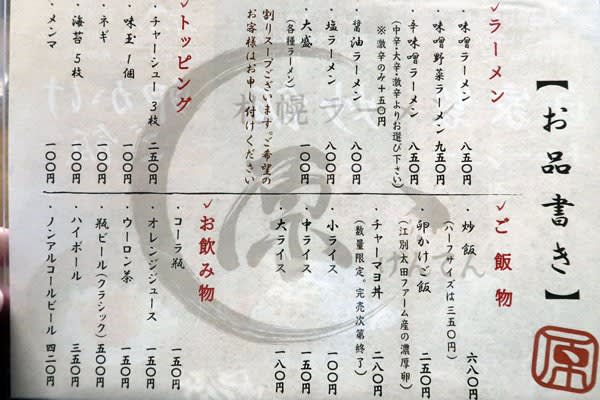 【お品書き】
ラーメン
・味噌ラーメン 八五〇円
・味噌野菜ラーメン 九五〇円
・辛味噌ラーメン 八五〇円
(中辛・大辛・激辛よりお選び下さい)
※激辛のみ+五〇円
・醤油ラーメン 八〇〇円
・塩ラーメン 八〇〇円
・大盛 一〇〇円
(各種ラーメン)
割りスープございます。ご希望の
お客様はお申し付けください
トッピング
・チャーシュー3枚 二五〇円
・味玉1個 一〇〇円
・ネギ 一〇〇円
・海苔5枚 一〇〇円
・メンマ 一〇〇円
ご飯物
・炒飯 六八〇円
(ハーフサイズは三五〇円)
・卵かけご飯 二五〇円
(江別太田ファーム産の濃厚卵)
・チャーマヨ丼 二八〇円
(数量限定 完売次第終了)
・小ライス 一〇〇円
・中ライス 一五〇円
・大ライス 一八〇円
お飲み物
・コーラ瓶 一五〇円
・オレンジジュース 一五〇円
・ウーロン茶 一五〇円
・瓶ビール(クラシック) 五〇〇円
・ハイボール 三五〇円
・ノンアルコールビール 四二〇円
札幌ラー
原
げんさん
原